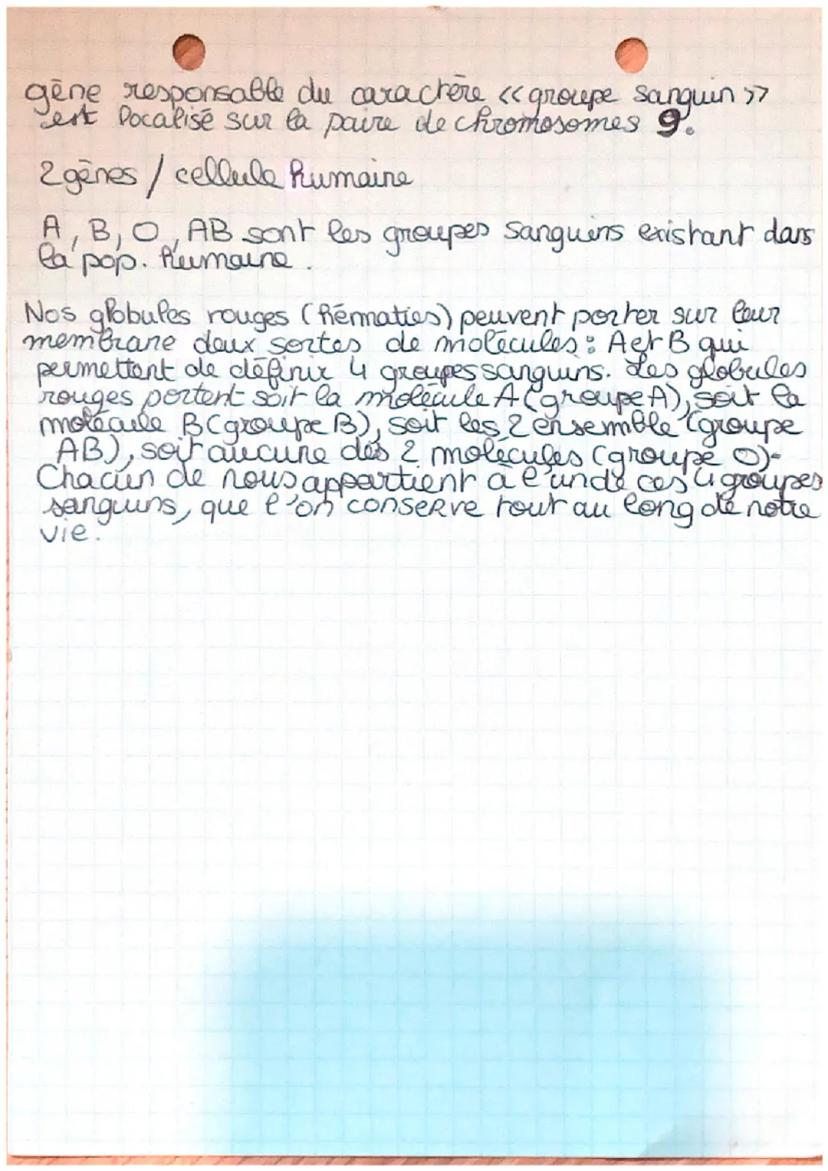 gène responsable du caractère «groupe sanguin»
est localisé sur la paire de chromosomes 9.
2 gènes / cellule humaine
A, B, O, AB sont les groupes sanguins existant dans
la pop. humaine.
Nos globules rouges (hématies) peuvent porter sur leur
membrane deux sortes de molécules : A et B qui
permettent de définir 4 groupes sanguins. Les globules
rouges portent soit la molécule A (groupe A), soit la
molécule B (groupe B), soit les 2 ensemble (groupe
AB), soit aucune des 2 molécules (groupe O).
Chacun de nous appartient à l'un de ces 4 groupes
sanguins, que l'on conserve tout au long de notre
vie.